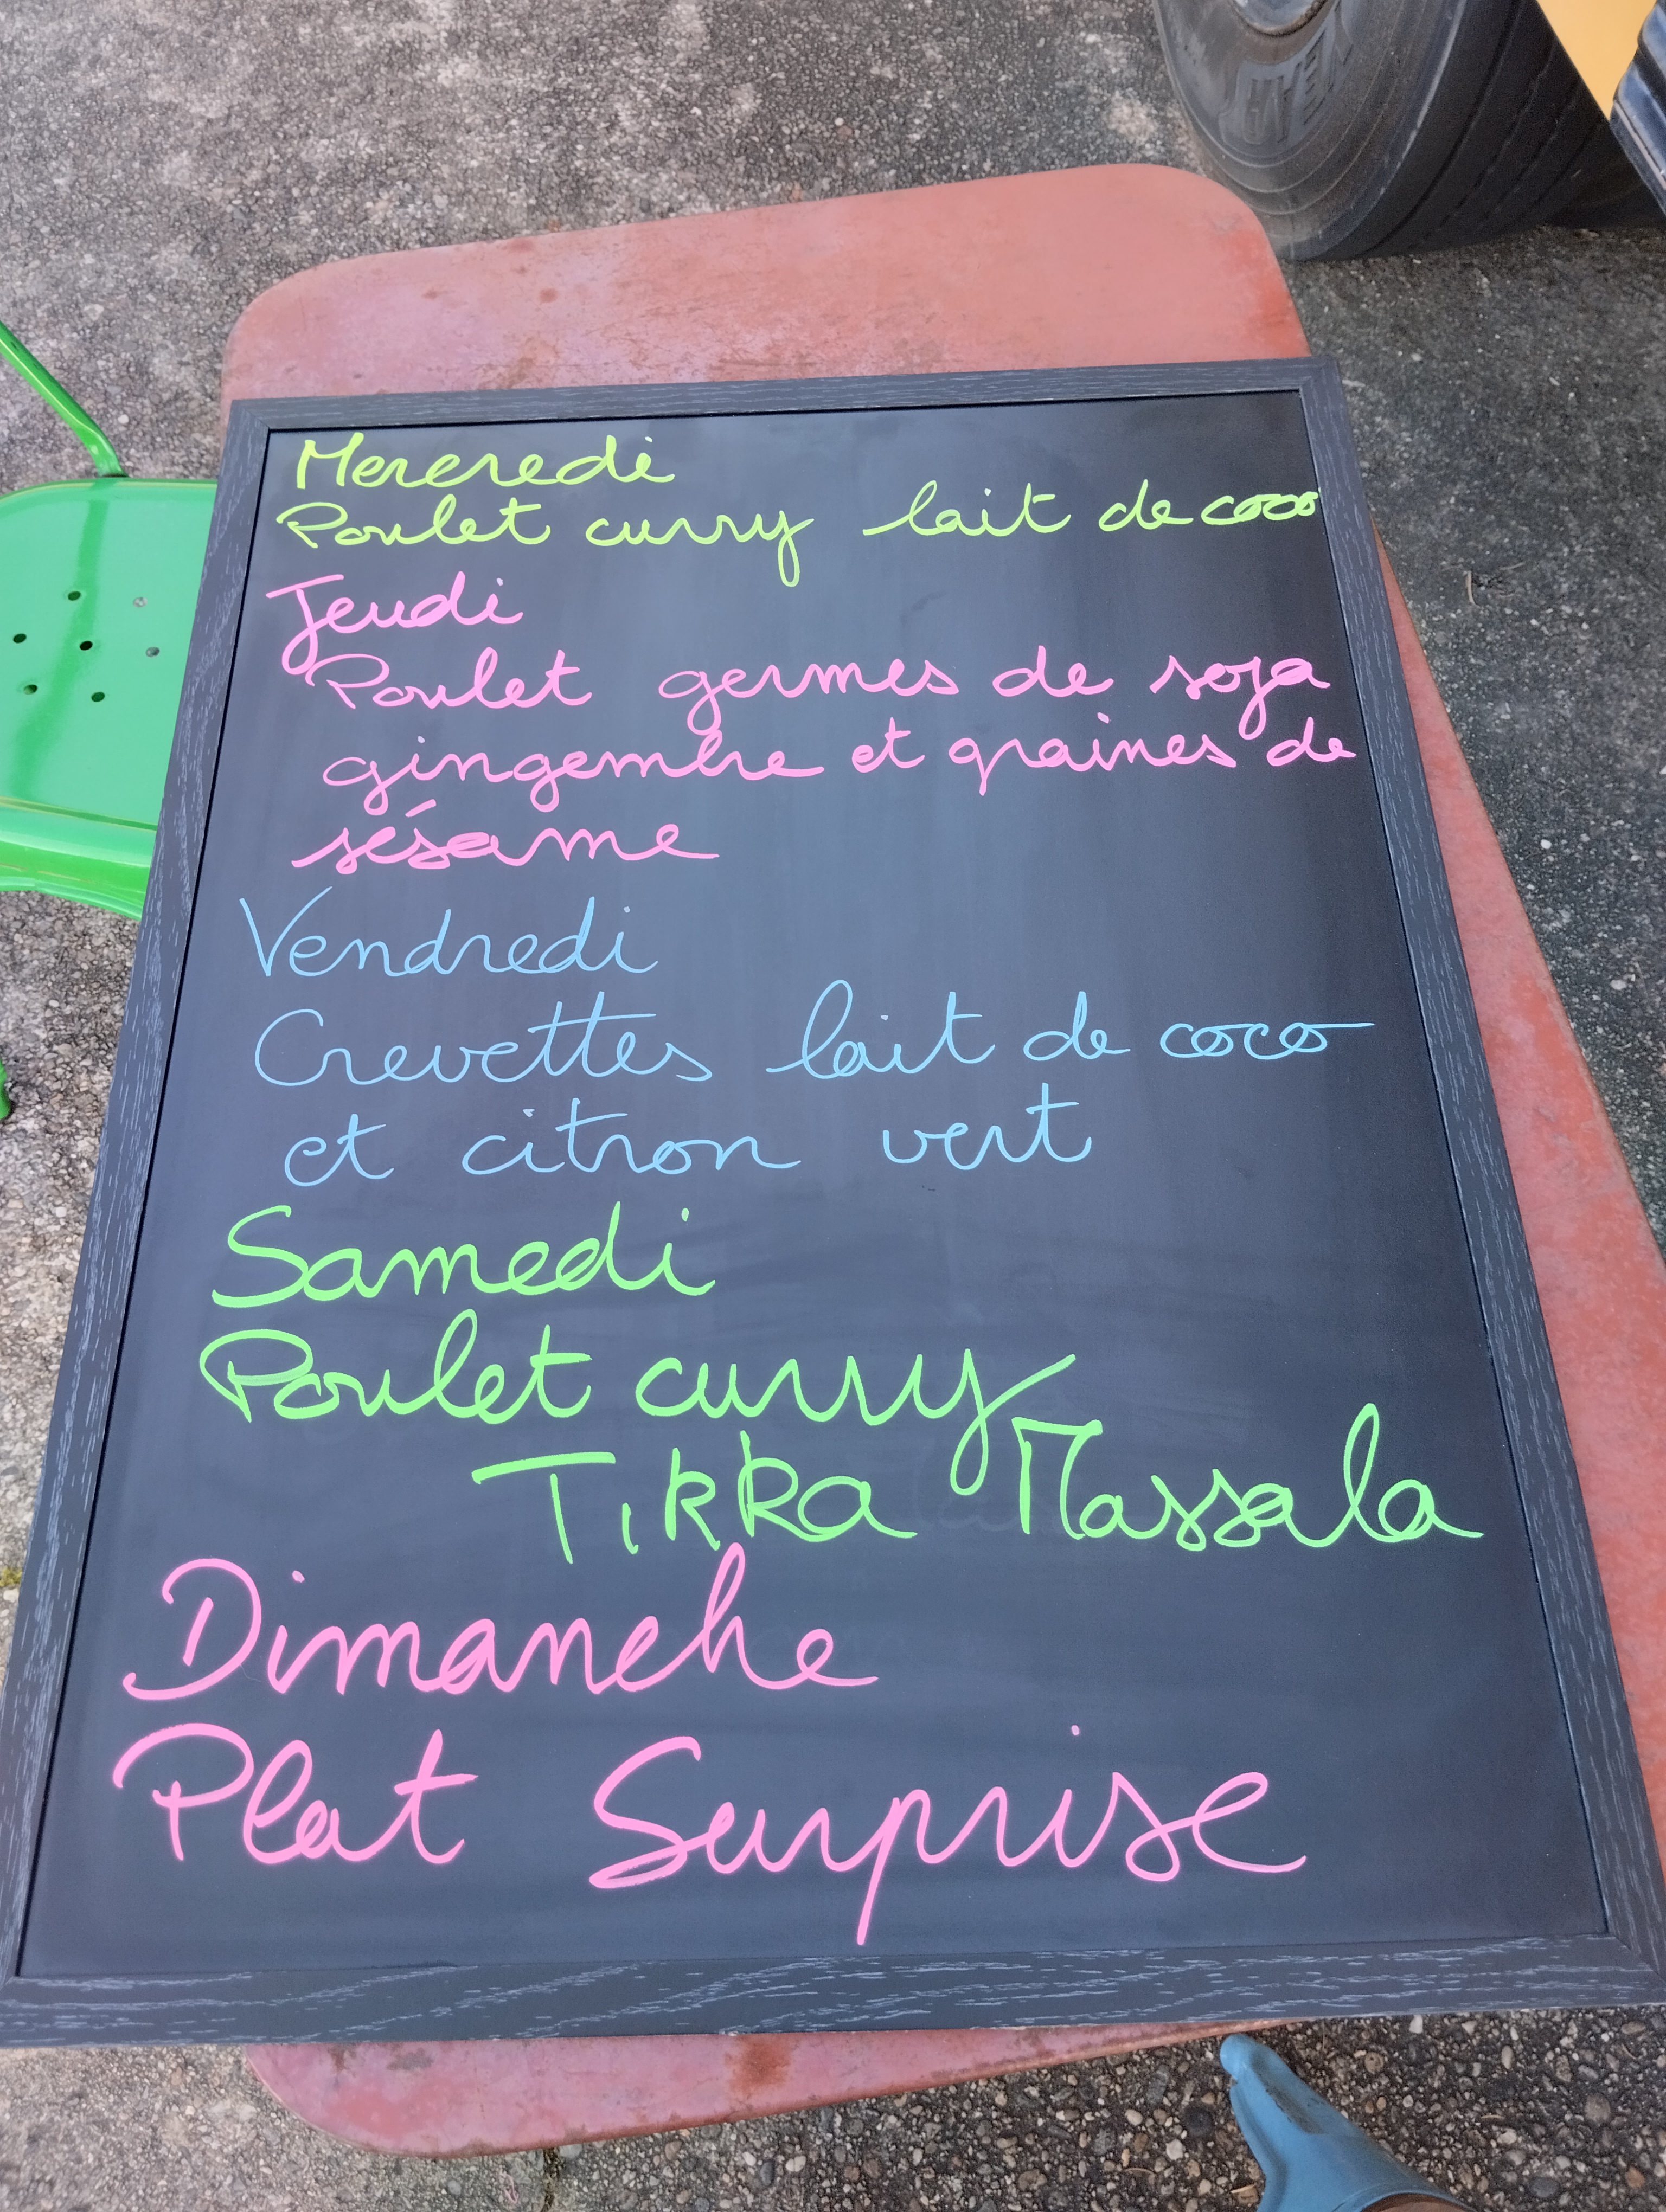 Mercredi
Poulet curry lait de coco
Jeudi
Poulet germes de soja
gingembre et graines de
sésame
Vendredi
Crevettes lait de coco
et citron vert
Samedi
Poulet curry
Tikka Massala
Dimanche
Plat Surprise